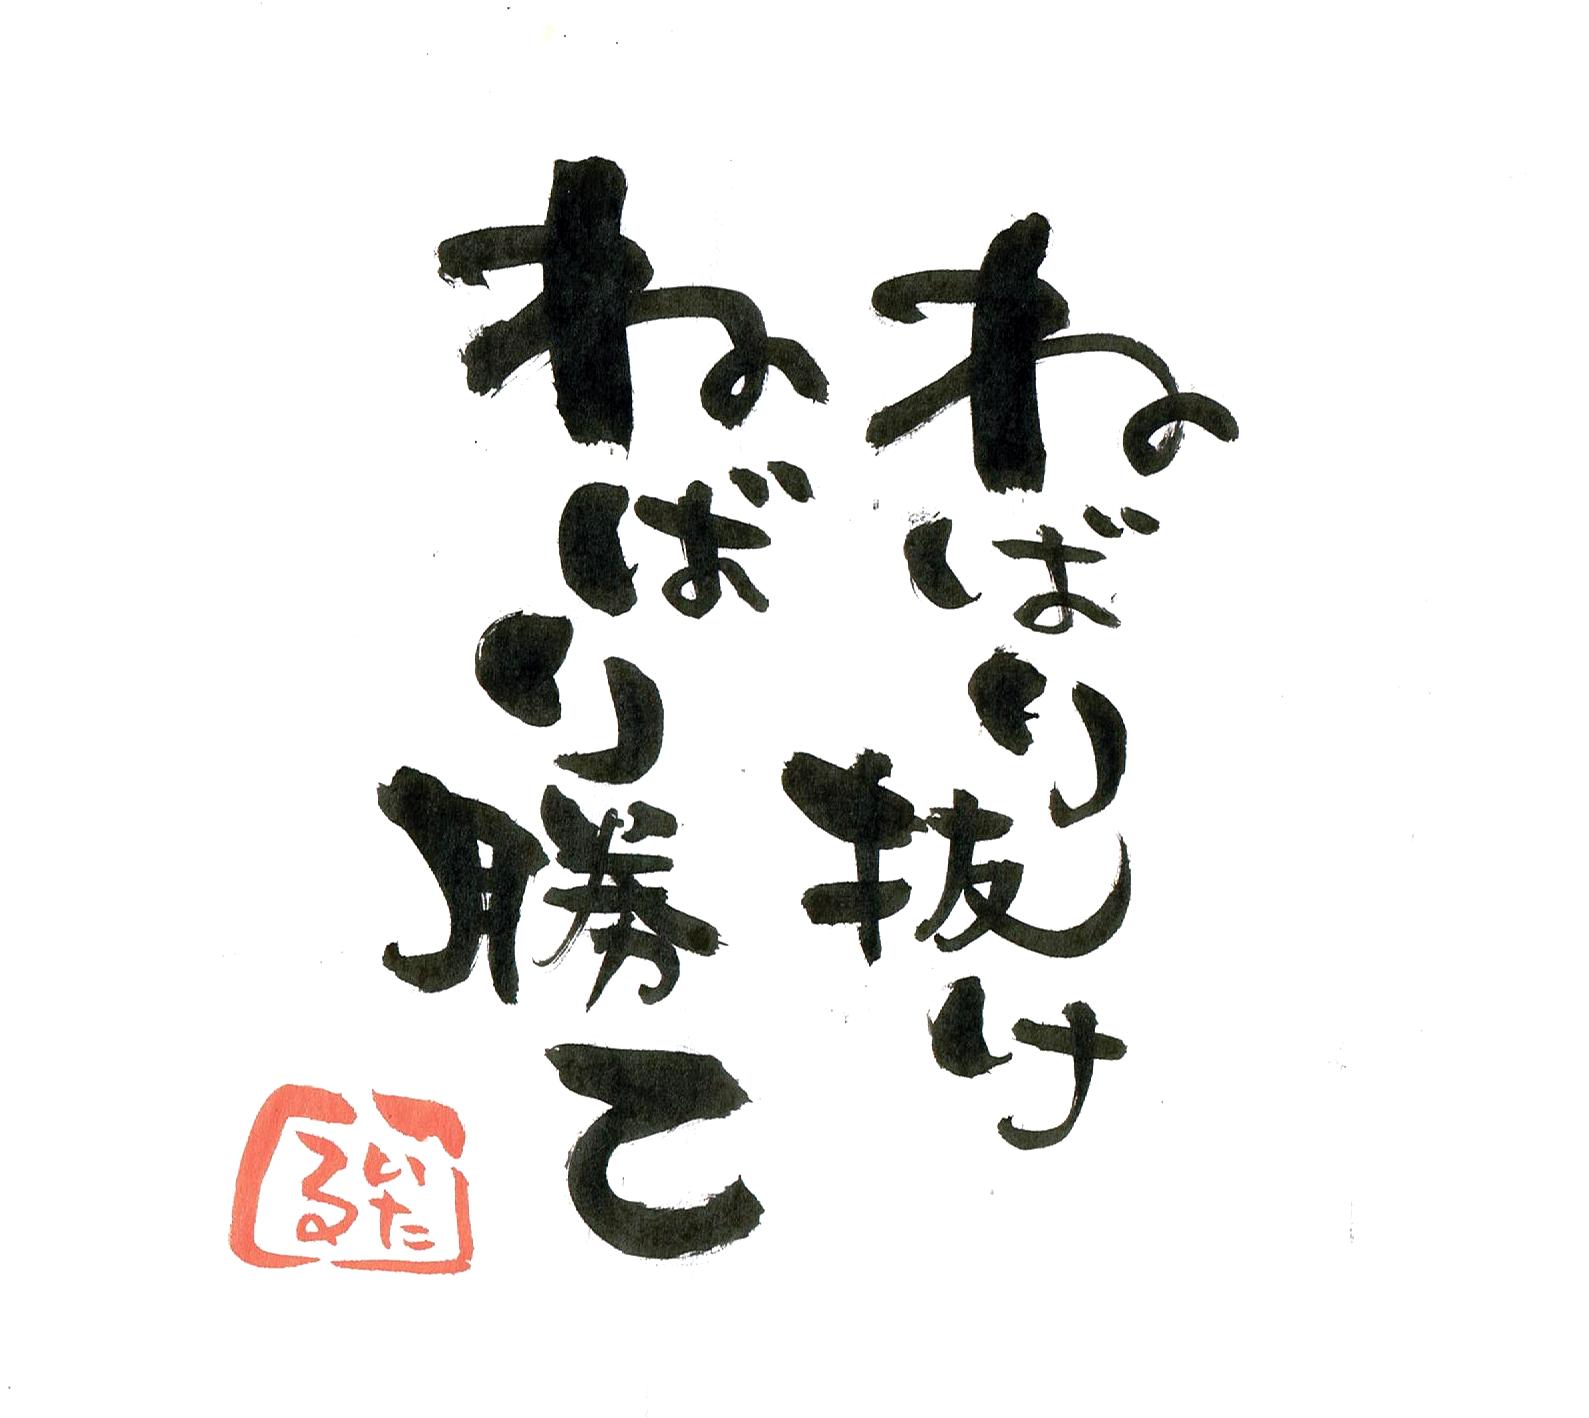 ねばり抜け
ねばり勝て
いた
る